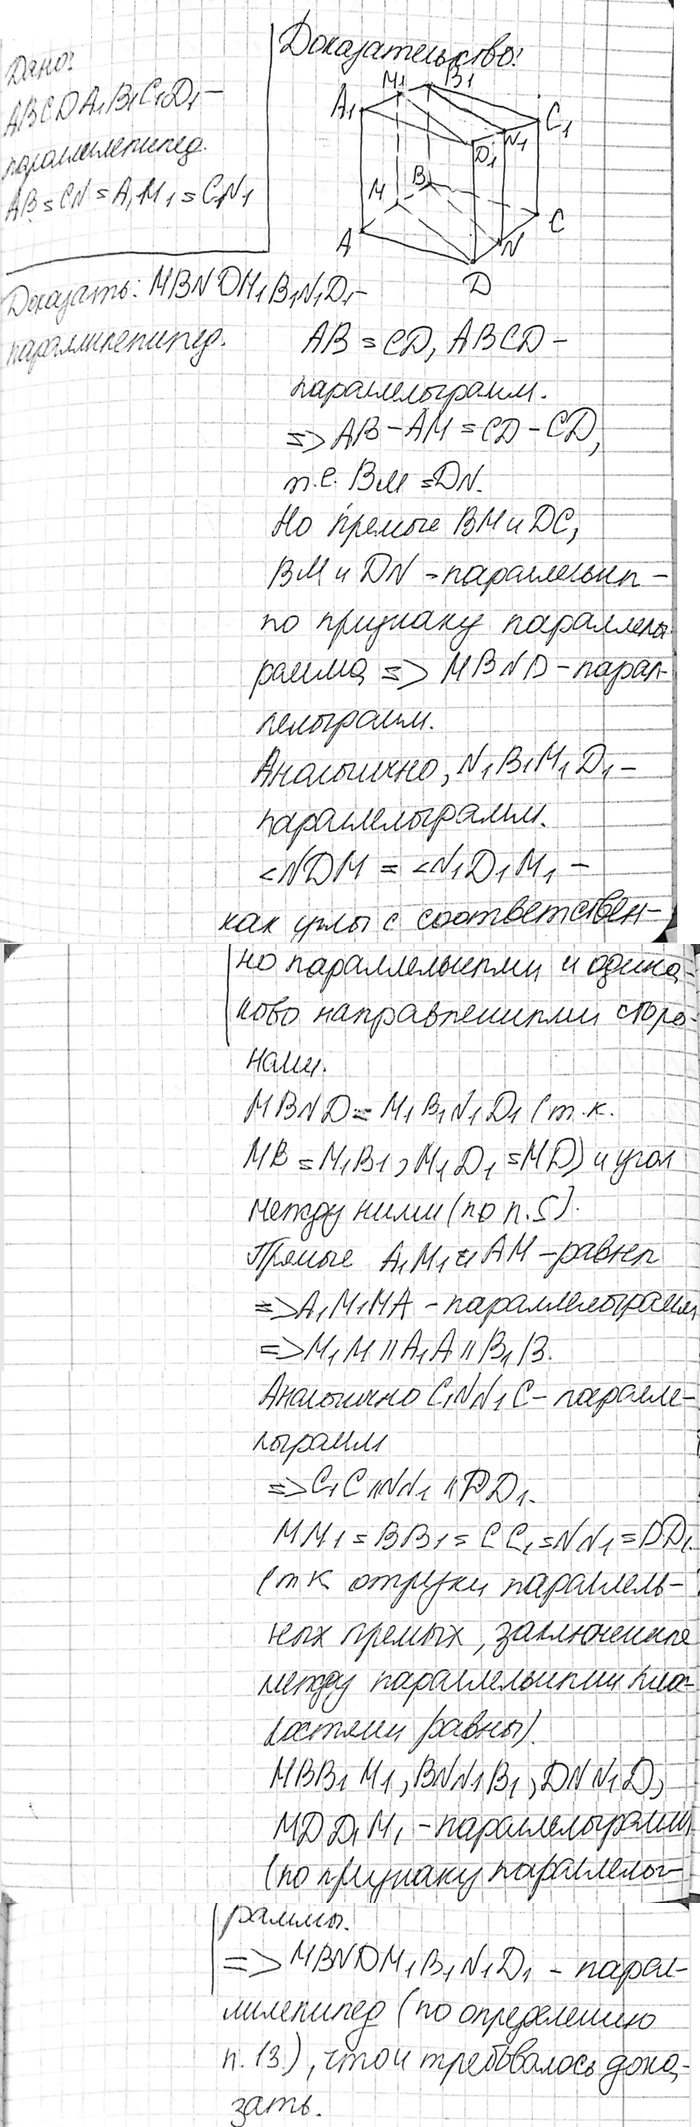 Дано:
ABCDA₁B₁C₁D₁ –
параллилепипед.
AB = CN = A₁M₁ = C₁N₁
Доказать: MBNDM₁B₁N₁D₁ –
параллилепипед.
Доказательство:
M₁ B₁
A₁ C₁
N₁
D₁
M B
A C
N
D
AB = CD, ABCD –
параллелограмм.
=> AB – AM = CD – CD,
т.е. BM = DN.
Но прямые BM и DC,
BM и DN – параллельны –
по признаку параллелог
рамма => MBND – парал-
лелограмм.
Аналогично, N₁B₁M₁D₁ –
параллелограмм.
<NDM = <N₁D₁M₁ –
как углы с соответствен-
но параллельными и одина-
ково направленными сторо-
нами.
MBND = M₁B₁N₁D₁ (т.к.
MB = M₁B₁, M₁D₁ = MD) и угол
между ними (по п.5).
Прямые A₁M₁ и AM – равны
=> A₁M₁MA – параллелограмм
=> M₁M || A₁A || B₁B.
Аналогично C₁NN₁C – паралле-
лограмм
=> C₁C || NN₁ || DD₁.
MM₁ = BB₁ = CC₁ = NN₁ = DD₁.
(т к отрезки параллель-
ных прямых, заключенные
между параллельными плос-
костями равны).
MBB₁M₁, BNN₁B₁, DNN₁D,
MDD₁M₁ – параллелограммы
(по признаку параллелог-
раммы.
=> MBNDM₁B₁N₁D₁ – парал-
лилепипед (по определению
п. 13.), что и требовалось дока-
зать.